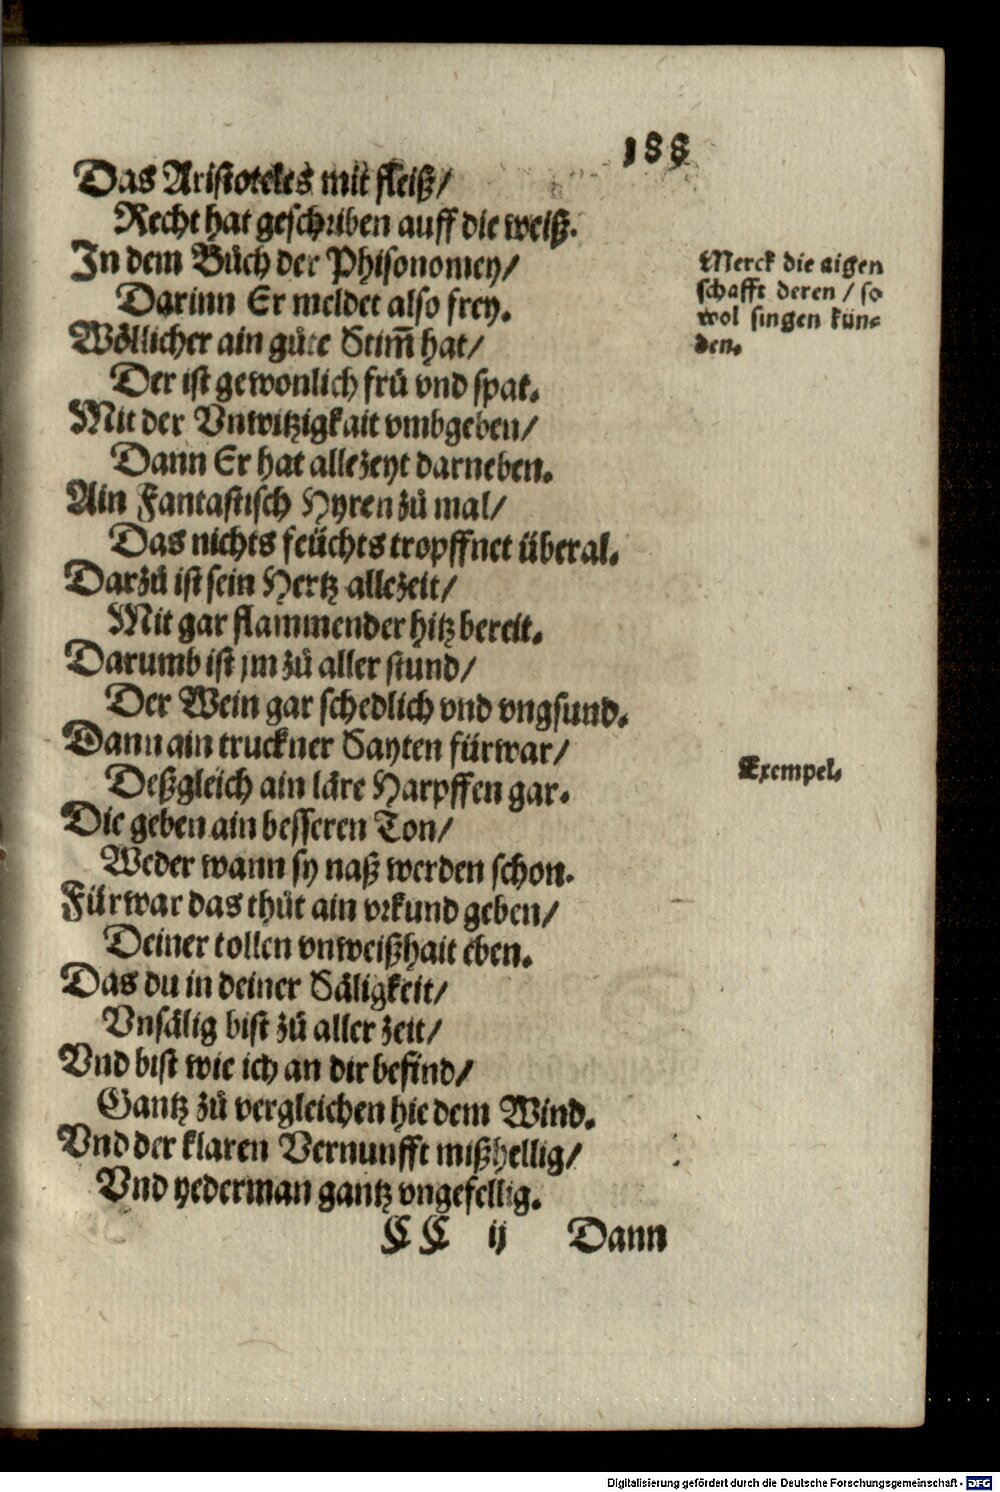 188
Das Aristoteles mit fleiß/
Recht hat geschriben auff die weiß.
In dem Bůch der Phisonomey/
Darinn Er meldet also frey.
Wöllicher ain gůte Stim̃ hat/
Der ist gewonlich frů vnd spat.
Mit der Vnwitzigkait vmbgeben/
Dann Er hat allezeyt darneben.
Ain Fantastisch Hyren zů mal/
Das nichts feüchts tropffnet überal.
Darzů ist sein Hertz allezeit/
Mit gar flammender hitz bereit.
Darumb ist jm zů aller stund/
Der Wein gar schedlich vnd vngsund.
Dann ain truckner Sayten fürwar/
Deßgleich ain läre Harpffen gar.
Die geben ain besseren Ton/
Weder wann sy naß werden schon.
Fürwar das thůt ain vrkund geben/
Deiner tollen vnweißhait eben.
Das du in deiner Säligkeit/
Vnsälig bist zů aller zeit/
Vnd bist wie ich an dir befind/
Gantz zů vergleichen hie dem Wind.
Vnd der klaren Vernunfft mißhellig/
Vnd yederman gantz vngefellig.
Merck die aigen
schafft deren / so
wol singen kün⸗
den.
Exempel.
CC ij Dann
Digitalisierung gefördert durch die Deutsche Forschungsgemeinschaft - DFG